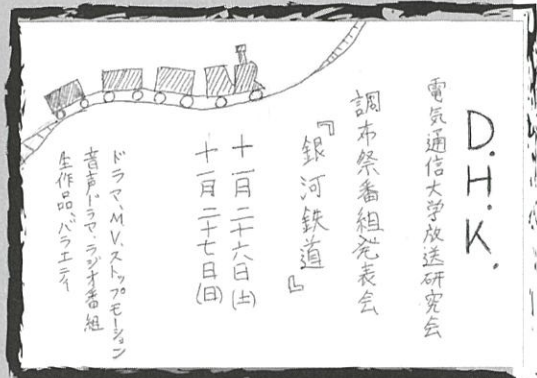 D.H.K.
電気通信大学放送研究会
調布祭番組発表会
『銀河鉄道』
十一月二十六日(土)
十一月二十七日(日)
ドラマ、MV、ストップモーション
音声ドラマ、ラジオ番組
生作品、バラエティ